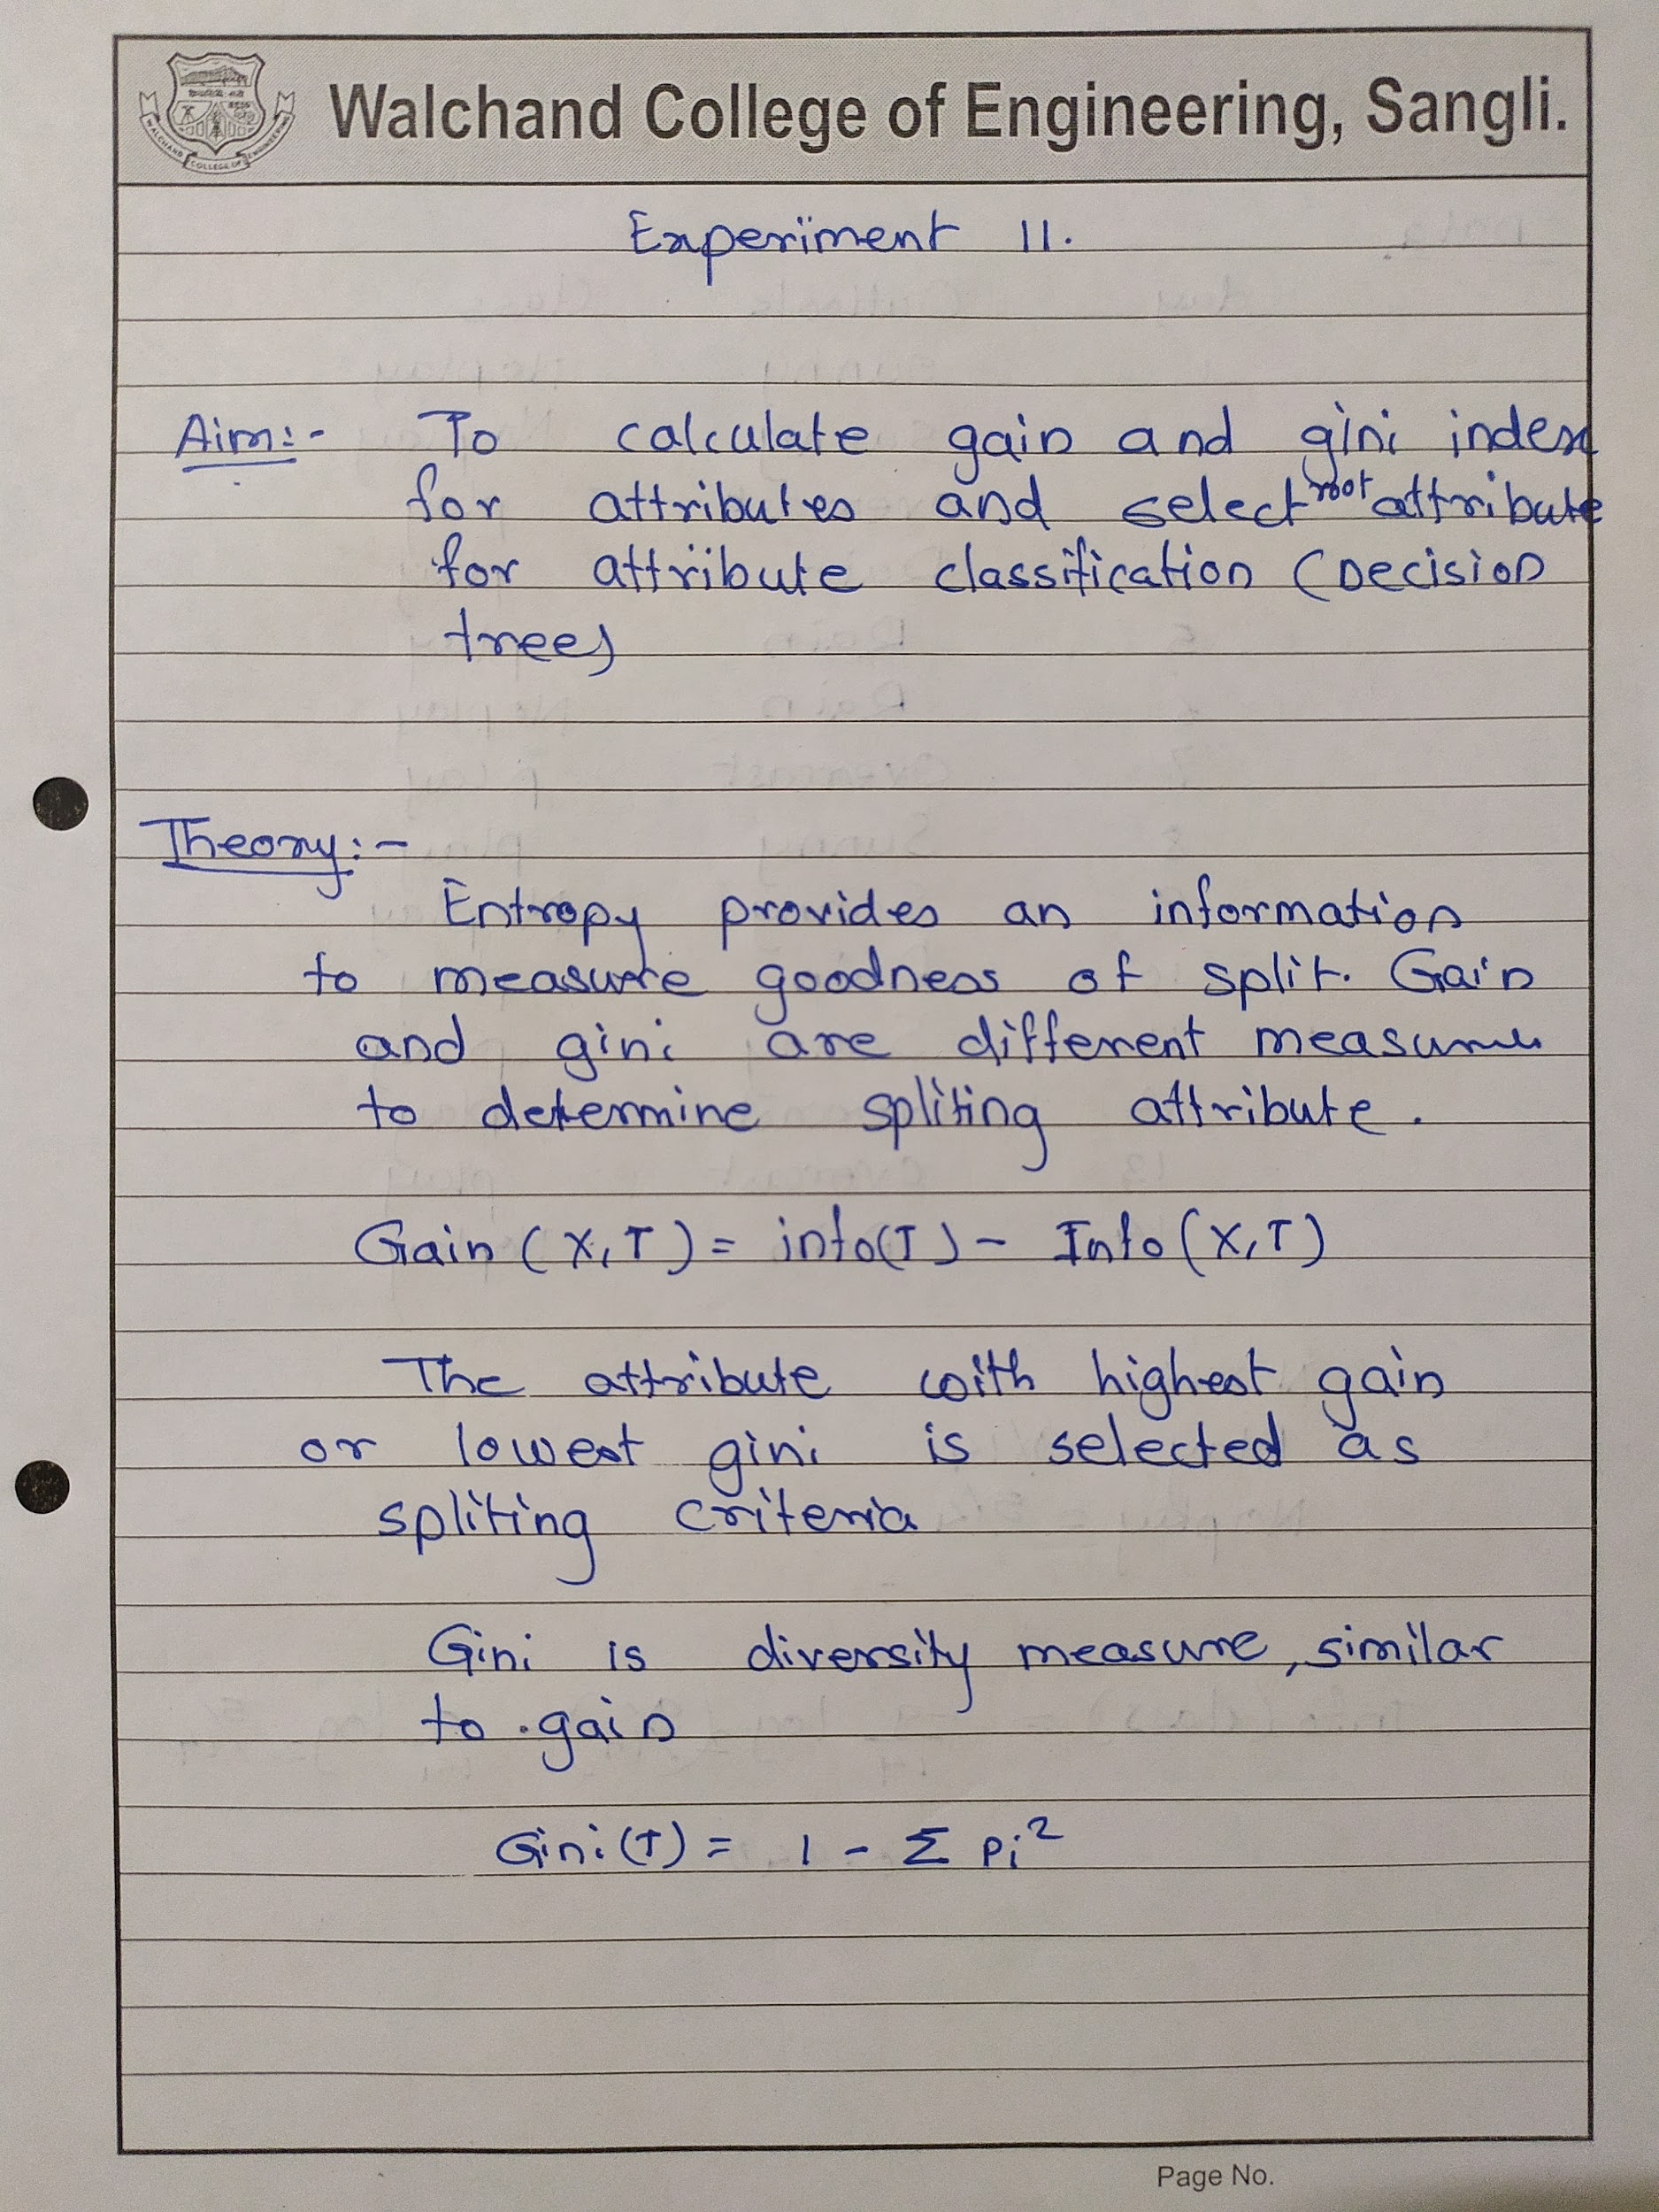 Walchand College of Engineering, Sangli.
WALCHAND COLLEGE OF ENGINEERING
Experiment 11.
Aim:- To calculate gain and gini index
for attributes and select root attribute
for attribute classification (Decision
tree)
Theory:-
Entropy provides an information
to measure goodness of split. Gain
and gini are different measures
to determine spliting attribute.
Gain (X,T) = info(T) - Info (X,T)
The attribute with highest gain
or lowest gini is selected as
spliting criteria
Gini is diversity measure, similar
to gain
Gini(T) = 1 - Σ pi²
Page No.